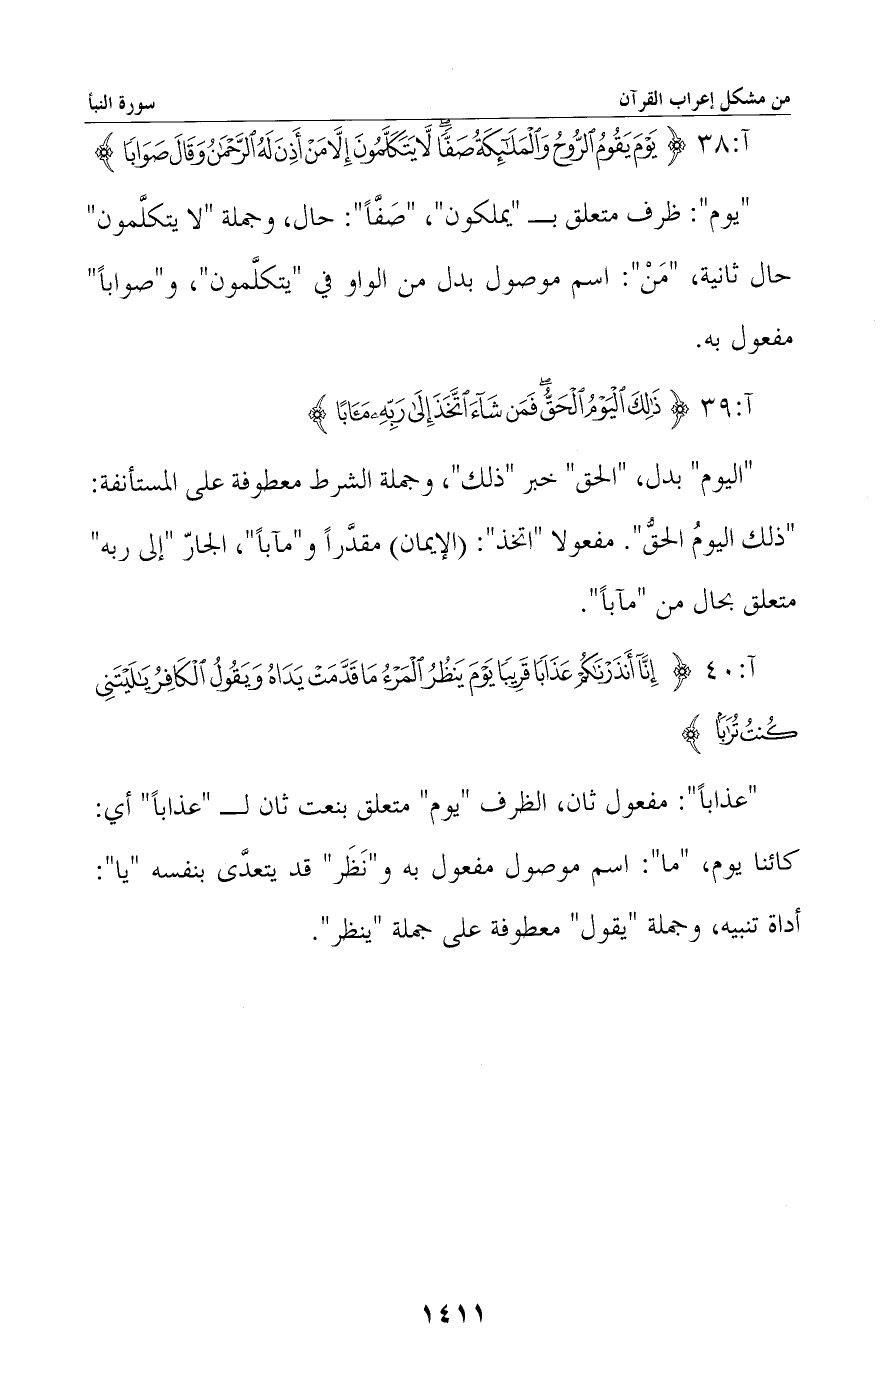 من مشكل إعراب القرآن
سورة النبأ
آ:٣٨ ﴿ يَوْمَ يَقُومُ ٱلرُّوحُ وَٱلْمَلَـٰٓئِكَةُ صَفًّاۖ لَّا يَتَكَلَّمُونَ إِلَّا مَنْ أَذِنَ لَهُ ٱلرَّحْمَـٰنُ وَقَالَ صَوَابًا ﴾
"يوم": ظرف متعلق بـــ "يملكون"، "صَفَّاً": حال، وجملة "لا يتكلَّمون"
حال ثانية، "مَنْ": اسم موصول بدل من الواو في "يتكلَّمون"، و"صواباً"
مفعول به.
آ:٣٩ ﴿ ذَٰلِكَ ٱلْيَوْمُ ٱلْحَقُّۖ فَمَن شَآءَ ٱتَّخَذَ إِلَىٰ رَبِّهِۦ مَـَٔابًا ﴾
"اليوم" بدل، "الحق" خبر "ذلك"، وجملة الشرط معطوفة على المستأنفة:
"ذلك اليومُ الحقُّ". مفعولا "اتخذ": (الإيمان) مقدَّراً و"مآباً"، الجارّ "إلى ربه"
متعلق بحال من "مآباً".
آ:٤٠ ﴿ إِنَّآ أَنذَرْنَـٰكُمْ عَذَابًا قَرِيبًا يَوْمَ يَنظُرُ ٱلْمَرْءُ مَا قَدَّمَتْ يَدَاهُ وَيَقُولُ ٱلْكَافِرُ يَـٰلَيْتَنِى
كُنتُ تُرَٰبًۢا ﴾
"عذاباً": مفعول ثان، الظرف "يوم" متعلق بنعت ثان لـــ "عذاباً" أي:
كائنا يوم، "ما": اسم موصول مفعول به و"نَظَر" قد يتعدَّى بنفسه "يا":
أداة تنبيه، وجملة "يقول" معطوفة على جملة "ينظر".
١٤١١